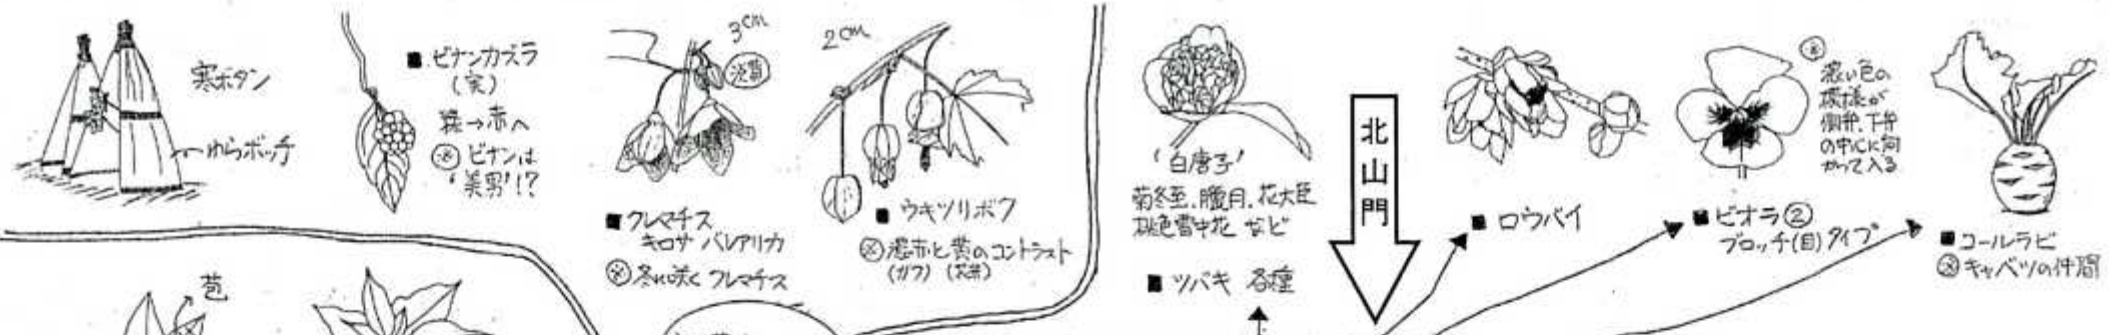 寒ボタン
わらボッチ
■ ビナンカズラ
(実)
緑→赤へ
※ ビナンは
'美男'!?
3cm
淡黄
■ クレマチス
キロサ バレアリカ
※ 冬に咲く クレマチス
2cm
■ ウキツリボク
※ 濃赤と黄のコントラスト
(ガク) (花弁)
'白唐子'
菊冬至、朧月、花大臣
桃色雪中花 など
■ ツバキ 各種
北山門
■ ロウバイ
※
濃い色の
模様が
側弁、下弁
の中心に向
かって入る
■ ビオラ②
ブロッチ(目)タイプ
■ コールラビ
※ キャベツの仲間
苞